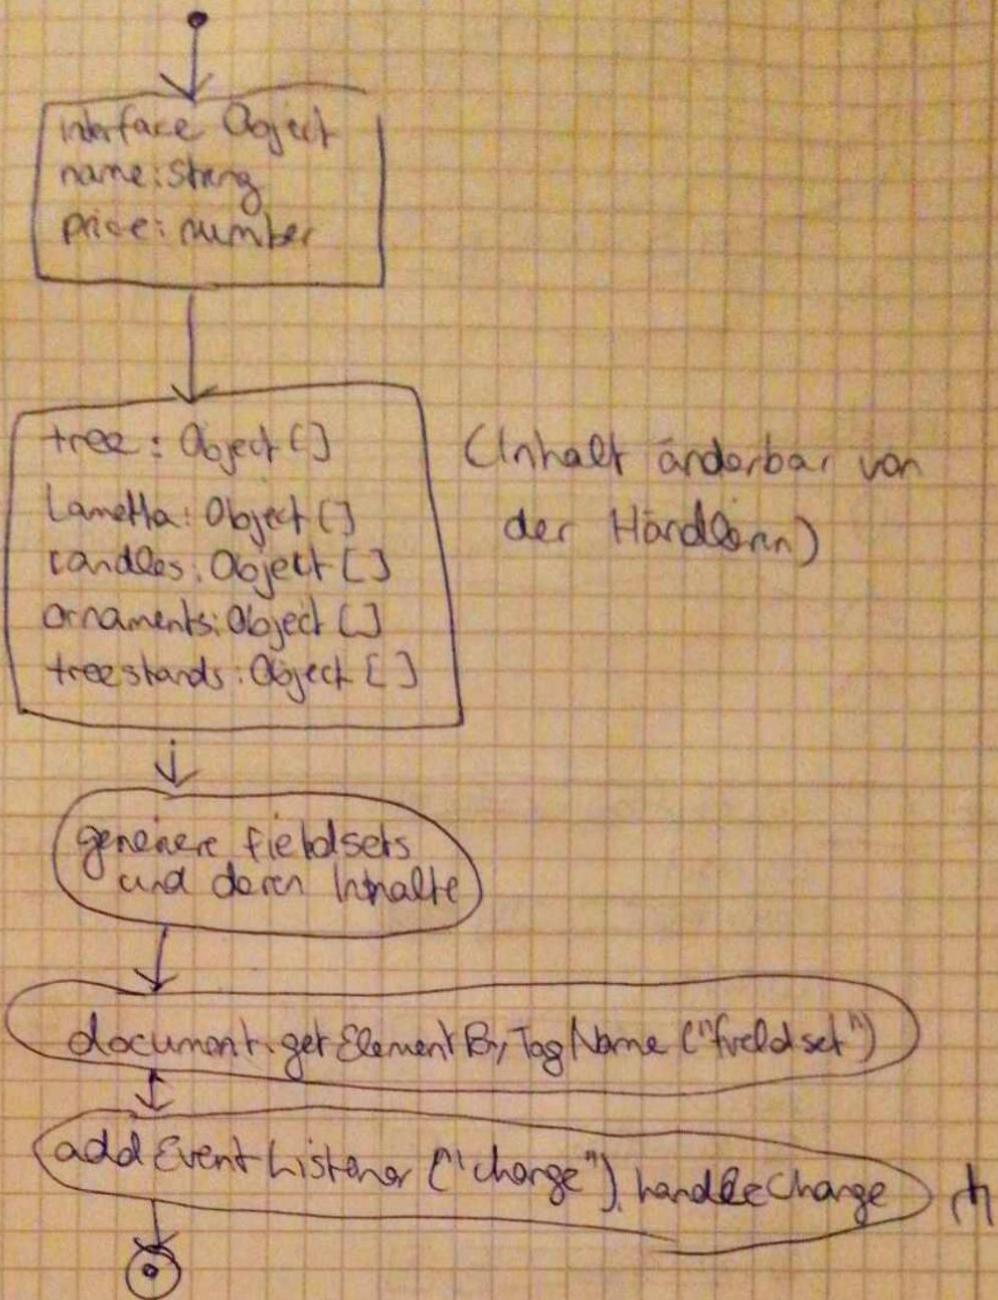 interface Object
name: string
price: number
tree: Object []
Lametta: Object []
candles: Object []
ornaments: Object []
treestands: Object []
(Inhalt änderbar von
der Händlerin)
generiere fieldsets
und deren Inhalte
document.getElementByTagName ("fieldset")
addEventListener ("change"), handleChange